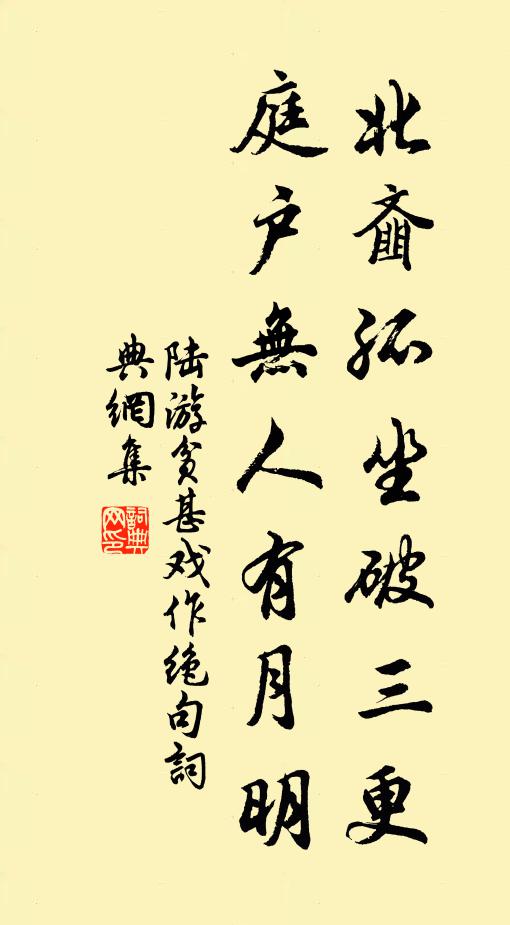 北齋孤坐破三更
庭户無人有月明
陆游贫甚戏作绝句詞
典網集
詞典网印